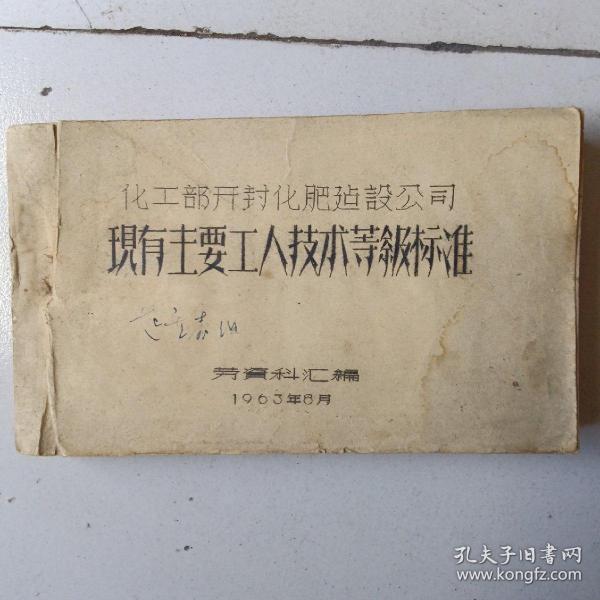 化工部开封化肥建設公司
現有主要工人技术等級标准
劳資科汇編
1963年8月
孔夫子旧书网
www.kongfz.com